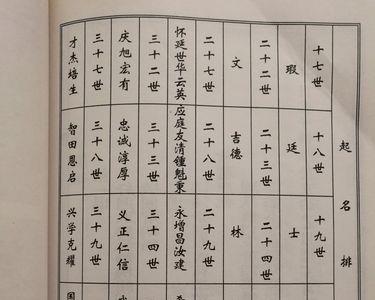 起名排
十七世
十八世
十九世
瑕
廷
士
二十二世
二十三世
二十四世
文
吉德
林
二十七世
二十八世
二十九世
怀廷世华云英
应庭友清锺魁秉
永增昌汝建
三十二世
三十三世
三十四世
庆旭宏有
忠诚淳厚
义正仁信
三十七世
三十八世
三十九世
才杰培生
智田恩启
兴学克耀